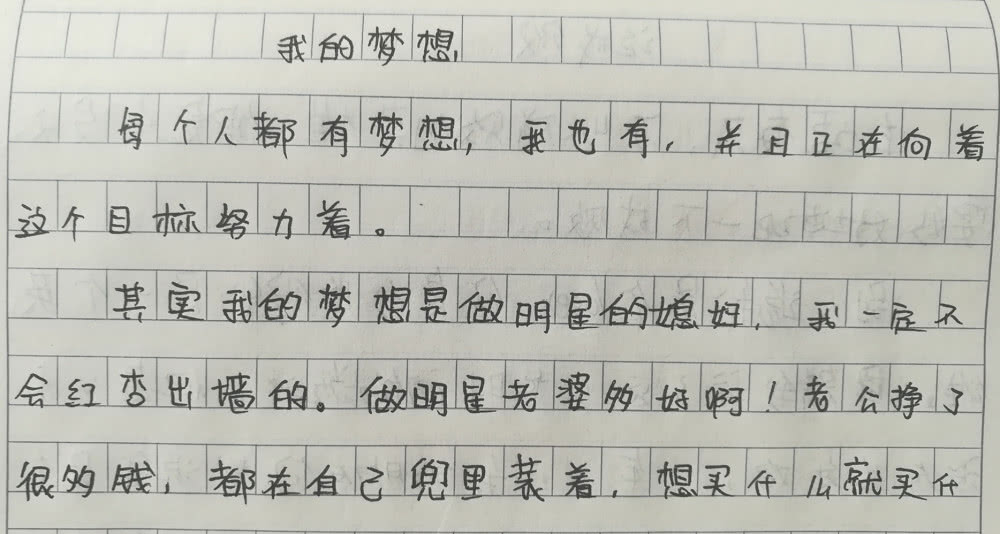 我的梦想
每个人都有梦想，我也有，并且正在向着
这个目标努力着。
其实我的梦想是做明星的媳妇，我一定不
会红杏出墙的。做明星老婆多好啊！老公挣了
很多钱，都在自己兜里装着，想买什么就买什